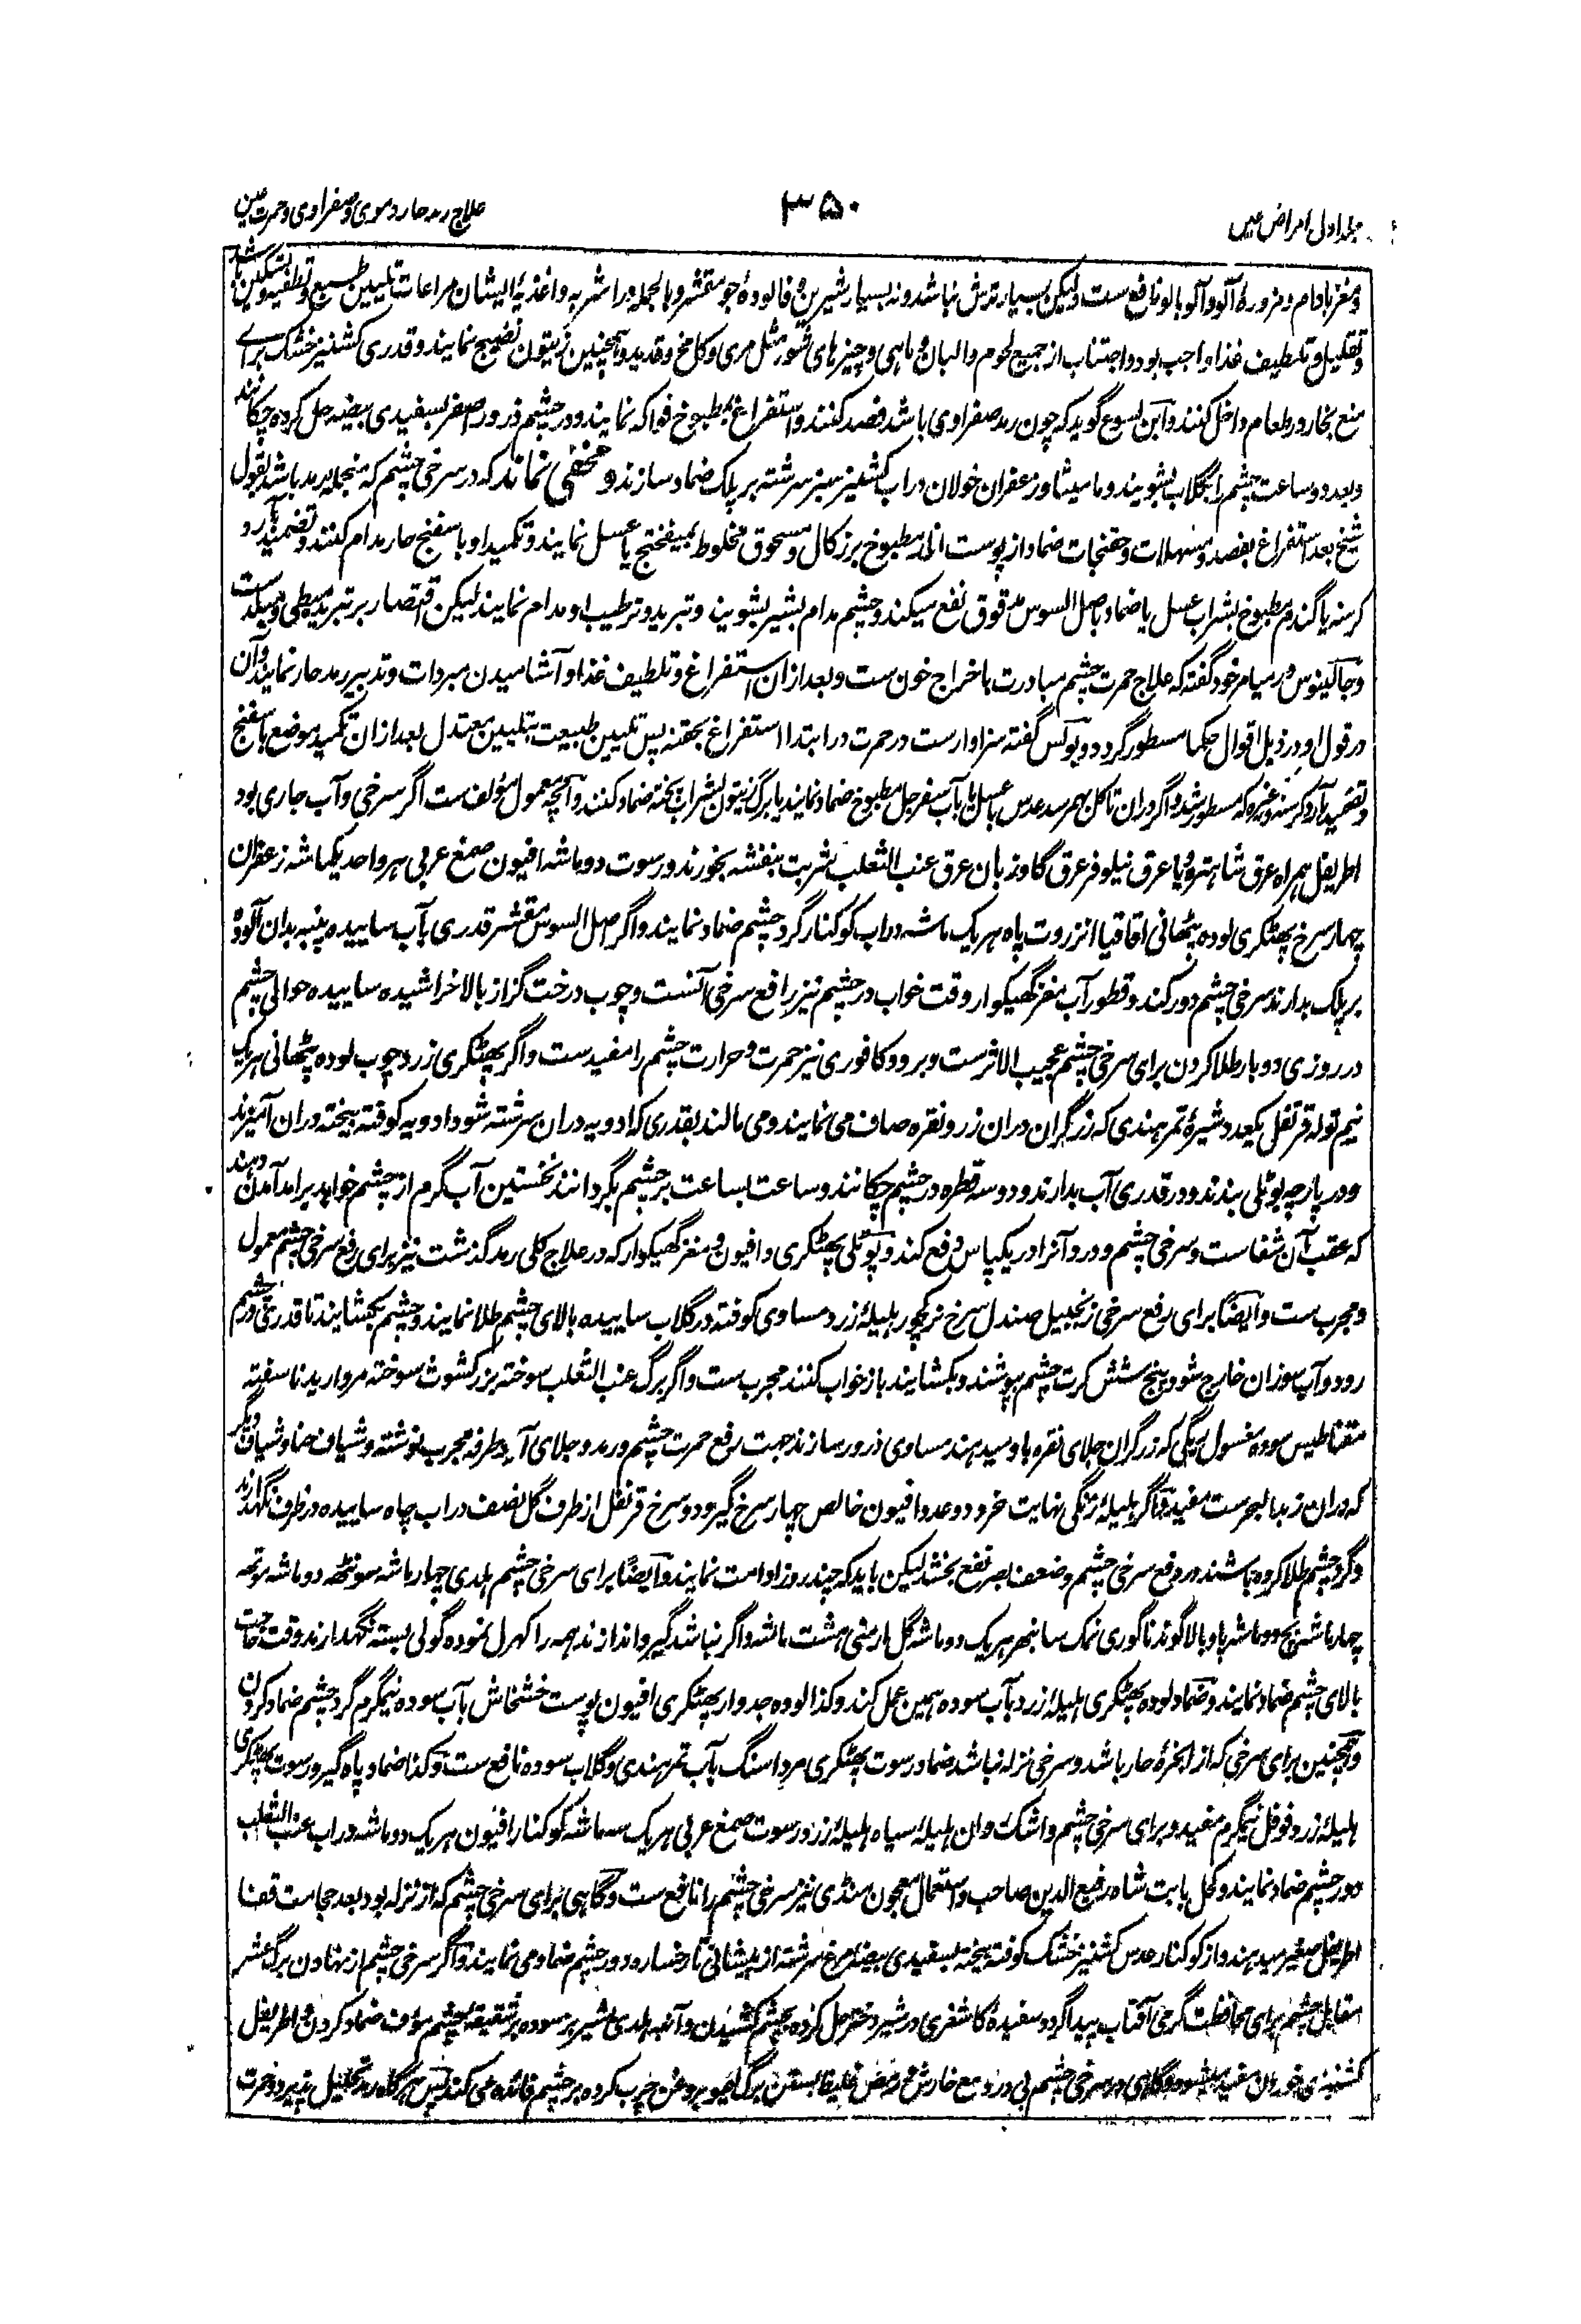 جلد اول امراض عین
۳۵۰
علاج رمد حار دموی و صفراوی و حمرت عین
و مغز بادام و مزورهٔ آلو و آلوبالو نافع ست ولیکن بسیار ترش نباشد و نه بسیار شیرین و فالودهٔ جو مقشر و بالجمله در اشربه و اغذیهٔ ایشان مراعات تلیین طبیع و تطفیه و تسکین باشد
و تقلیل و تلطیف غذا واجب بود و اجتناب از جمیع لحوم و البان و ماهی و چیزهای شور مثل مری و کامخ و قدید و همچنین زیتون نضیج نمایند و قدری کشنیز خشک برای
منع بخار در طعام داخل کنند و ابن یسوع گوید که چون رمد صفراوی باشد فصد کنند و استفراغ بمطبوخ فواکه نمایند و در چشم ذرور اصفر بسفیدی بیضه حل کرده چکانند
و بعد دو ساعت چشم را بگلاب بشویند و مامیثا و زعفران خولان در آب کشنیز سبز سرشته بر پلک ضماد سازند و مخفی نماند که در سرخی چشم که منجمله رمد باشد بقول
شیخ بعد استفراغ بفصد و مسهلات و حقنجات ضماد از پوست انار مطبوخ بر زکال و مسحوق مخلوط بمیفختج یا عسل نمایند و تکمید او باسفنج حار مدام کنند و تضمید بآرد
کرسنه یا گندم مطبوخ بشراب عسل یا ضماد باصل السوس مدقوق نفع میکند و چشم مدام بشیر بشویند و تبرید و ترطیب او مدام نمایند لیکن اقتصار بر تبرید مبطی و مبلد ست
و جالینوس در میامر خود گفته که علاج حمرت چشم مبادرت باخراج خون ست و بعد ازان استفراغ و تلطیف غذا و آشامیدن مبردات و تدبیر رمد حار نمایند و آن
در قول او در ذیل اقوال حکما مسطور گردد و بولس گفته سزاوارست در حمرت در ابتدا استفراغ بحقنه پس تلیین طبیعت بتلیین معتدل بعد ازان تکمید موضع باسفنج
و تضمید بآرد کرسنه و غیره که مسطور شد و اگر دران تاکل بهم رسد عدس با عسل یا بآب سفرجل مطبوخ ضماد نمایند یا برگ زیتون بشراب پخته ضماد کنند و آنچه معمول مؤلف ست اگر سرخی و آب جاری بود
اطریفل همراه عرق شاهتره و یا عرق نیلوفر عرق گاوزبان عرق عنب الثعلب شربت بنفشه بخورند و رسوت دو ماشه افیون صمغ عربی هر واحد یکماشه زعفران
چهار سرخ پهٹکری لوده پٹهانی اقاقیا انزروت پاه هریک ماشه در آب کوکنار گرد چشم ضماد نمایند و اگر اصل السوس مقشر قدری بآب ساییده پنبه بدان آلوده
بر پلک بدارند سرخی چشم دور کند و قطور آب مغز گهیکوار وقت خواب در چشم نیز رافع سرخی آنست و چوب درخت گز از بالا خراشیده ساییده حوالی چشم
در روزی دو بار طلا کردن برای سرخی چشم عجیب الاثرست و برود کافوری نیز حمرت و حرارت چشم را مفیدست و اگر پهٹکری زرد چوب لوده پٹهانی هریک
نیم توله قرنفل یکعدد شیرهٔ تمر هندی که زرگران دران زر و نقره صاف می نمایند و می مالند بقدری که ادویه دران سرشته شود ادویه کوفته بیخته دران آمیزند
و در پارچه پوٹلی بندند و در قدری آب بدارند و دو سه قطره در چشم چکانند و ساعت بساعت بر چشم بگردانند نخستین آب گرم از چشم خواهد برامد آمدن دهند
که عقب آن شفاست و سرخی چشم و درد آنرا در یکپاس دفع کند و پوٹلی پهٹکری و افیون و مغز گهیکوار که در علاج کلی رمد گذشت نیز برای رفع سرخی چشم معمول
و مجرب ست و ایضاً برای رفع سرخی زنجبیل صندل سرخ نرکچور هلیلهٔ زرد مساوی کوفته در گلاب ساییده بالای چشم طلا نمایند و چشم بکشایند تا قدری در چشم
رود و آب سوزان خارج شود پنج شش کرت چشم بپوشند و بکشایند باز خواب کنند مجرب ست و اگر برگ عنب الثعلب سوخته بزر کشوث سوخته مروارید ناسفته
مقناطیس سوده مغسول بریگی که زرگران جلای نقره باو میدهند مساوی ذرور سازند جهت رفع حمرت چشم و رمد و جلای آن و طرفه مجرب نوشته و شیاف حنا و شیاف دیگر
که دران زبد البحرست مفید و اگر هلیلهٔ زنگی نهایت خرد دو عدد افیون خالص چهار سرخ گیرو دو سرخ قرنفل از طرف گل نصف در آب چاه ساییده در ظرف نگهدارند
و گرد چشم طلا کرده باشند در رفع سرخی چشم و ضعف بصر نفع بخشد لیکن باید که چند روز مداومت نمایند و ایضاً برای سرخی چشم هلدی چهار ماشه سونٹهه دو ماشه توتهه
چهار ماشه بچ دو ماشه پاو بالا گوند ناگوری نمک سانبهر هریک دو ماشه گل ارمنی هشت ماشه و اگر نباشد گیرو اندازند همه را کهرل نموده گولی بسته نگهدارند وقت حاجت
بالای چشم ضماد نمایند و ضماد لوده پهٹکری هلیلهٔ زرد بآب سوده همین عمل کند و کذا لوده جدوار پهٹکری افیون پوست خشخاش بآب سوده نیمگرم گرد چشم ضماد کردن
و همچنین برای سرخی که از ابخرهٔ حار باشد و سرخی نزله نباشد ضماد رسوت پهٹکری مرداسنگ بآب تمر هندی و گلاب سوده نافع ست و کذا ضماد پاه گیرو رسوت پهٹکری
هلیلهٔ زرد فوفل نیمگرم مفید و برای سرخی چشم و اشک و ان هلیلهٔ سیاه هلیلهٔ زرد رسوت صمغ عربی هریک سه ماشه کوکنار افیون هریک دو ماشه در آب عنب الثعلب
دور چشم ضماد نمایند و کحل بابت شاه رفیع الدین صاحب و استعمال معجون منڈی نیز سرخی چشم را نافع ست و گاهی برای سرخی چشم که از نزله بود بعد حجامت قفا
اطریفل صغیر میدهند و از کوکنار عدس کشنیز خشک کوفته بیخته بسفیدی بیضهٔ مرغ سرشته از پیشانی تا رخساره دور چشم ضماد می نمایند و اگر سرخی چشم از نهادن برگ عشر
مقابل چشم برای محافظت گرمی آفتاب پیدا گردد سفیدهٔ کاشغری در شیر دختر حل کرده بچشم کشیدن و آنبه هلدی بشیر بز سوده بر شقیقهٔ چشم مؤف ضماد کردن و اطریفل
کشنیزی خوردن مفید میشود و گاهی در سرخی چشم بی درد مع خارش بستن برگ بروغن چرب کرده بر چشم فائده می کند پس هرگاه رمد تحلیل پذیرد و حمرت